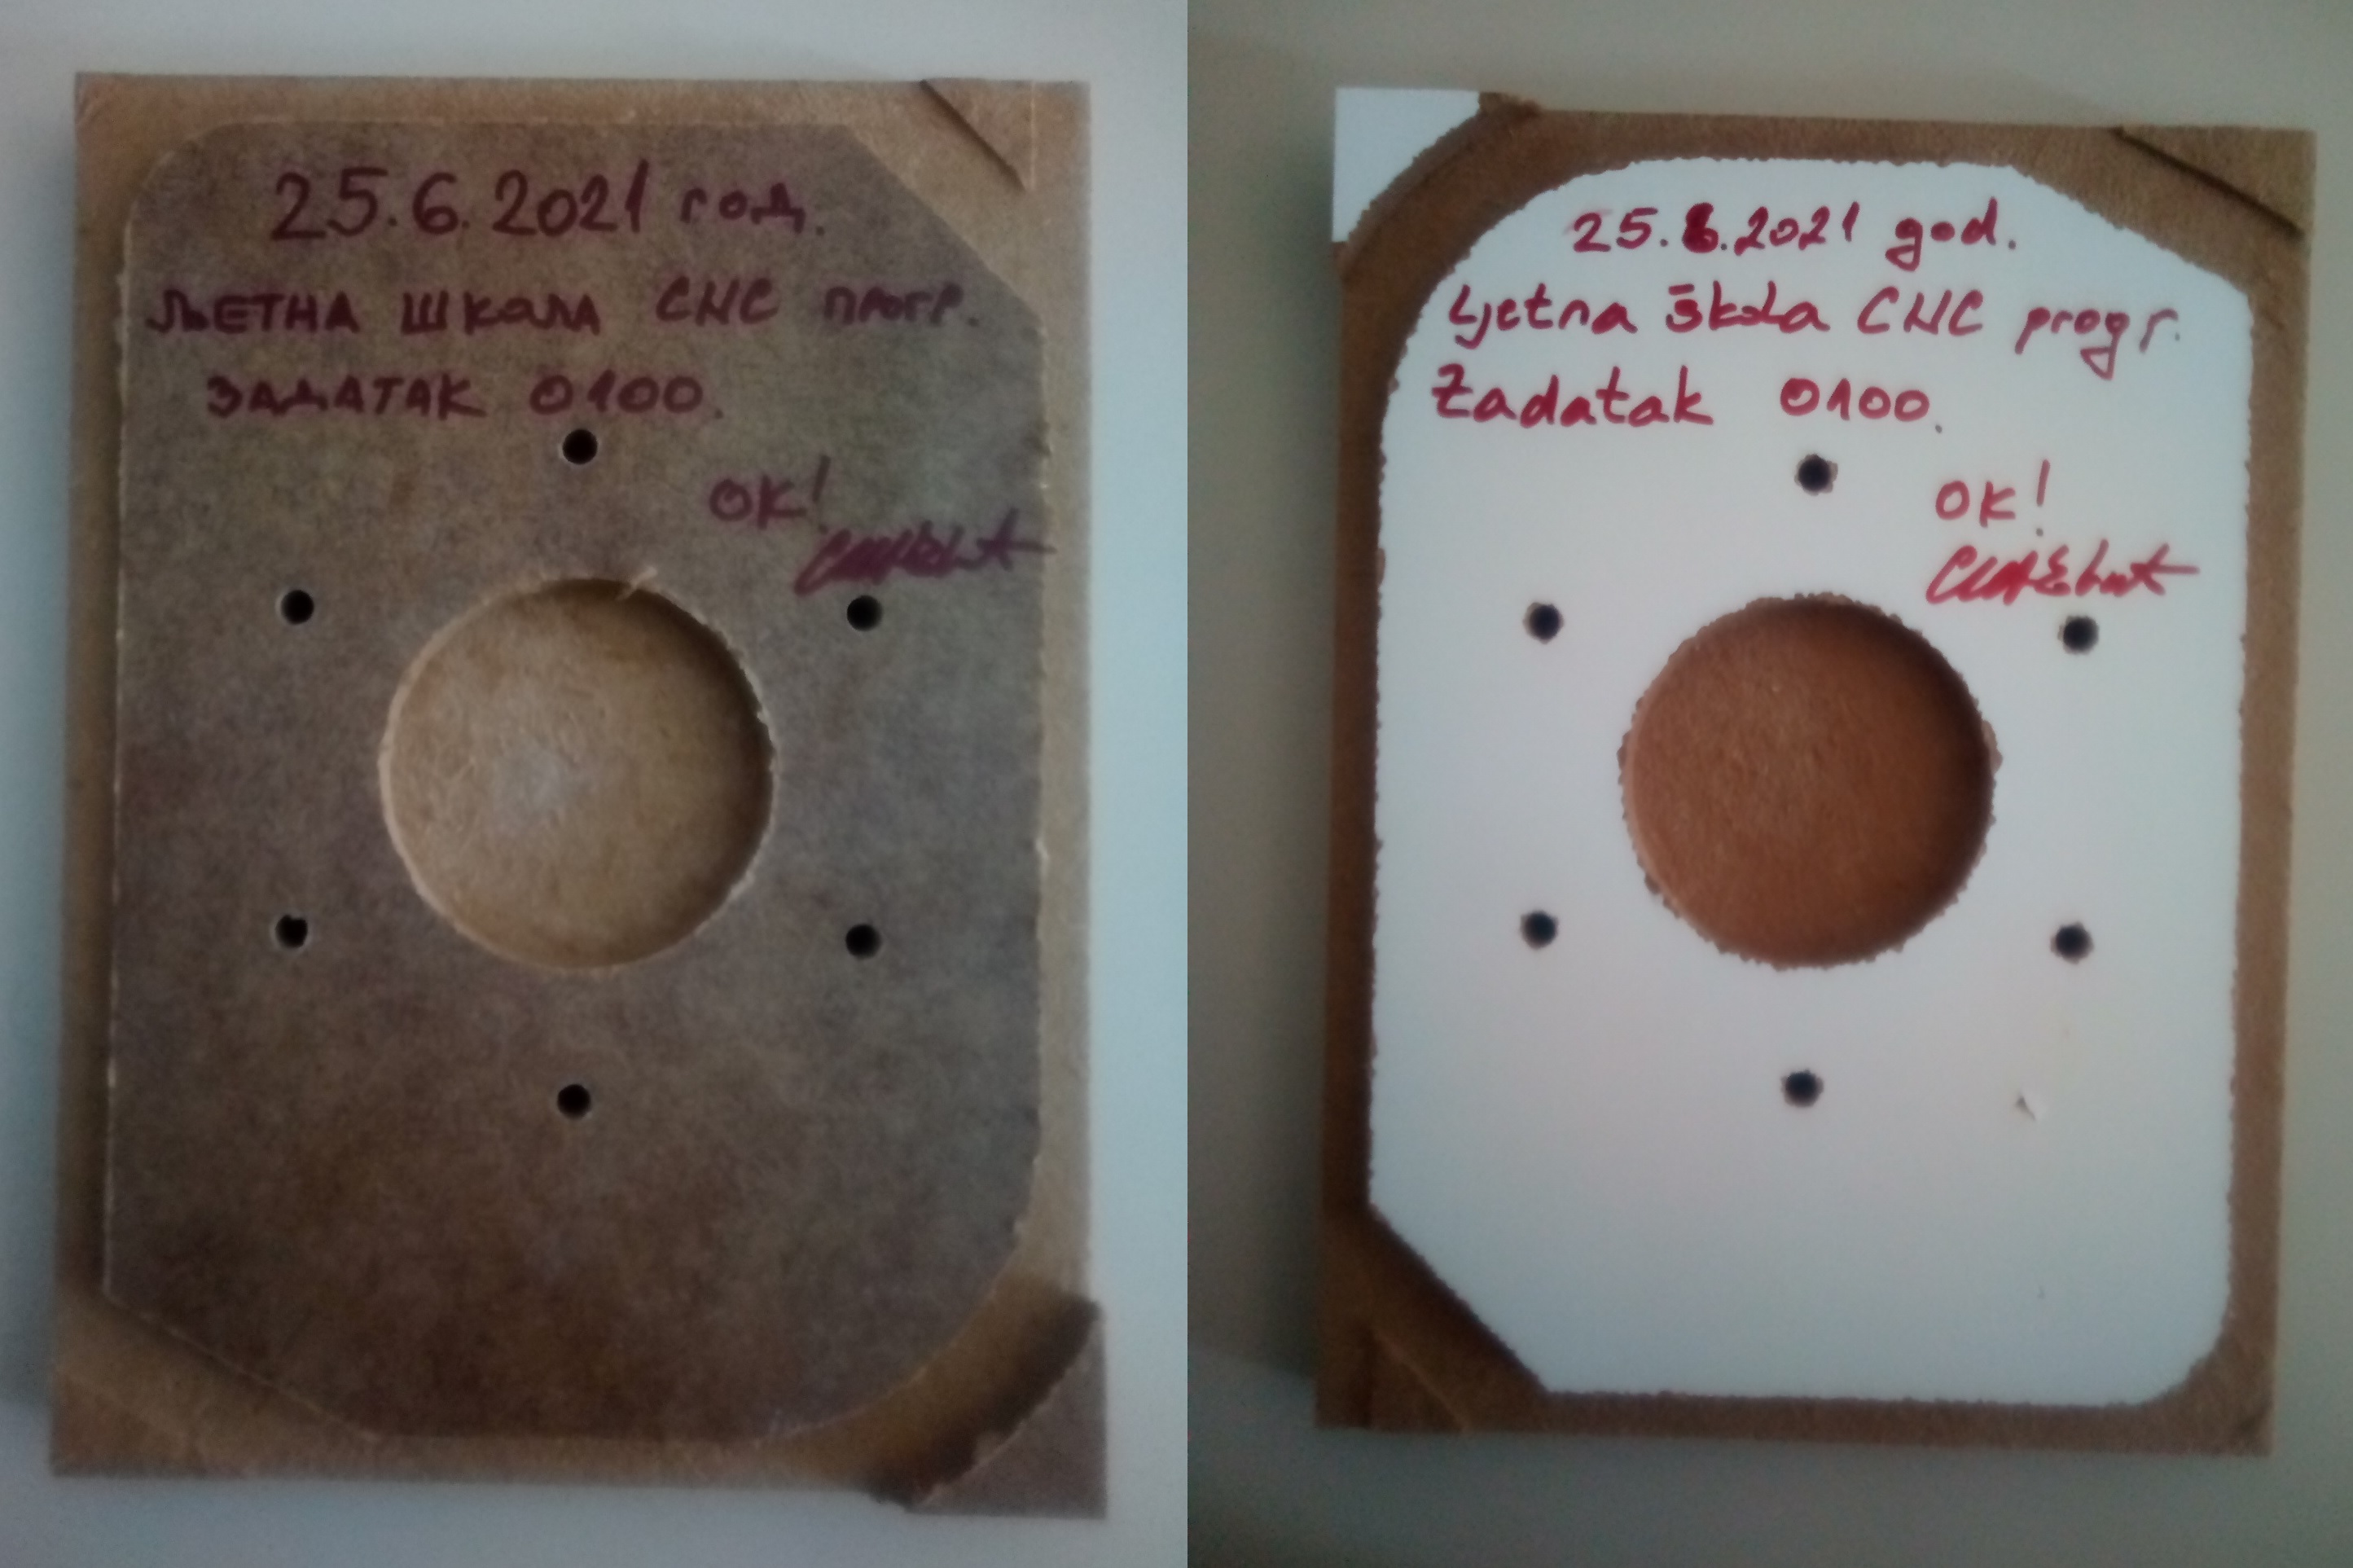 25.6.2021 год.
ЉЕТНА ШКОЛА CNC ПРОГР.
ЗАДАТАК 0100.
OK!
25.6.2021 god.
Ljetna škola CNC progr.
Zadatak 0100.
OK!